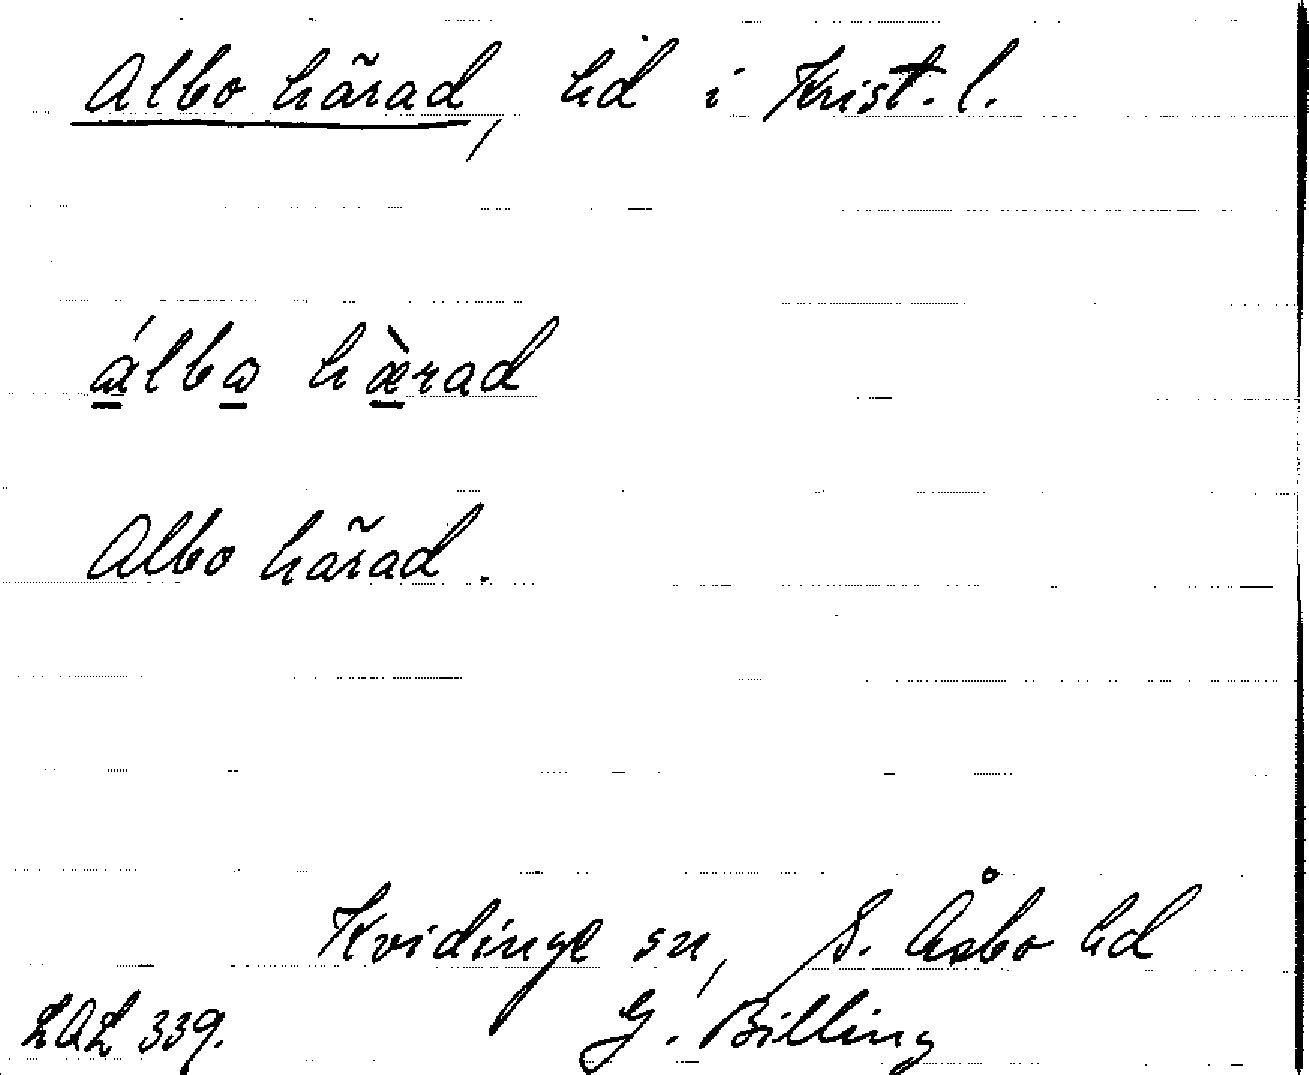 Albo härad, hd i Krist. l.
álbω hæ̀rad
Albo härad.
Kvidinge sn, S. Åsbo hd
LAL 339. G. Billing